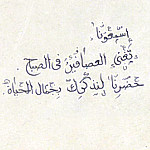 إسمعونا
تغني العصافير في الصباح
حضرنا لنذكرك بجمال الحياة